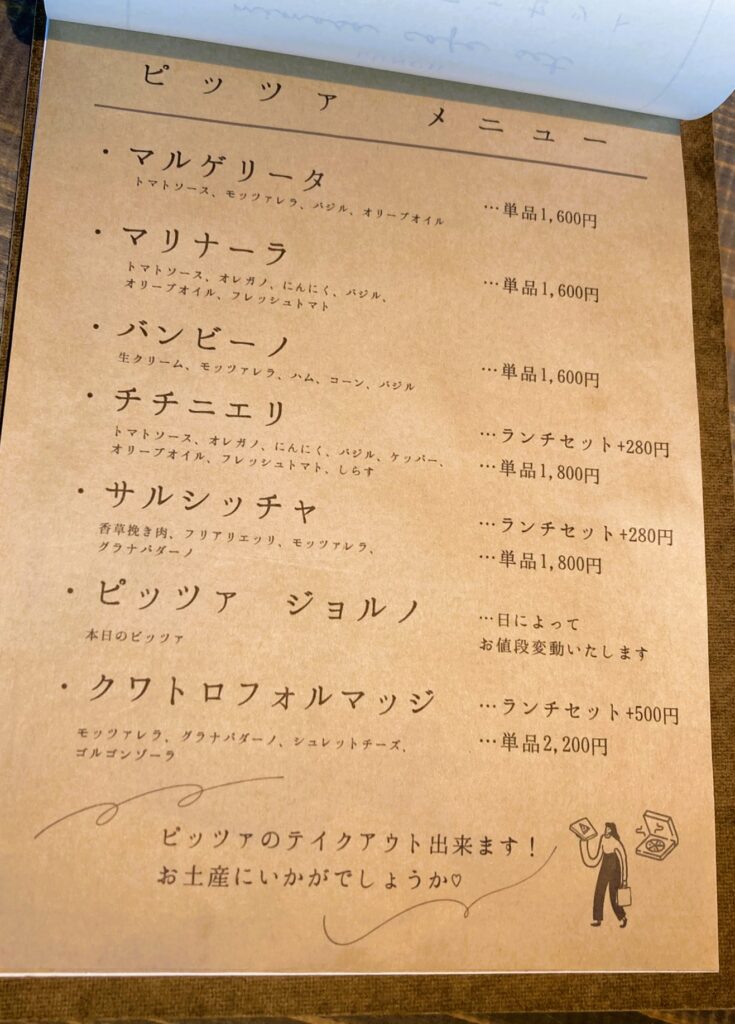 ピッツァ メニュー
・マルゲリータ
トマトソース、モッツァレラ、バジル、オリーブオイル
…単品1,600円
・マリナーラ
トマトソース、オレガノ、にんにく、バジル、
オリーブオイル、フレッシュトマト
…単品1,600円
・バンビーノ
生クリーム、モッツァレラ、ハム、コーン、バジル
…単品1,600円
・チチニエリ
トマトソース、オレガノ、にんにく、バジル、ケッパー、
オリーブオイル、フレッシュトマト、しらす
…ランチセット+280円
…単品1,800円
・サルシッチャ
香草挽き肉、フリアリエッリ、モッツァレラ、
グラナパダーノ
…ランチセット+280円
…単品1,800円
・ピッツァ ジョルノ
本日のピッツァ
…日によって
お値段変動いたします
・クワトロフォルマッジ
モッツァレラ、グラナパダーノ、シュレットチーズ、
ゴルゴンゾーラ
…ランチセット+500円
…単品2,200円
ピッツァのテイクアウト出来ます!
お土産にいかがでしょうか♡